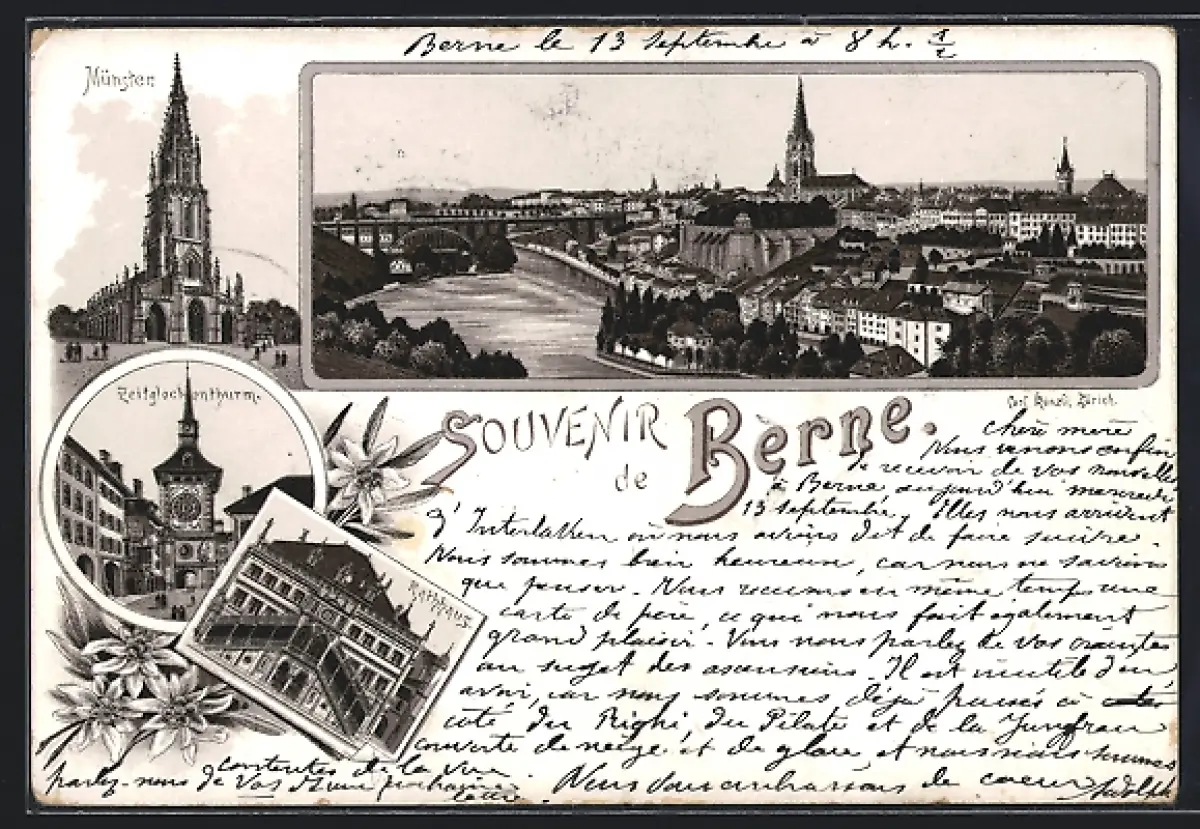 Berne le 13 septembre à 8 h. 1/2
Münster.
Zeitglockenthurm.
Rathhaus.
SOUVENIR
de
Berne.
Zürich.
chère mère
Nous venons enfin
de recevoir de vos nouvelles
à Berne, aujourd'hui mercredi
13 septembre, Elles nous arrivent
d'Interlakken où nous avions dit de faire suivre.
Nous sommes bien heureux, car nous ne savions
que penser. Nous recevons en même temps une
carte de père, ce qui nous fait également
grand plaisir. Vous nous parlez de vos craintes
au sujet des ascensions. Il est inutile d'en
avoir, car nous sommes déjà passés à
côté du Righi, du Pilate et de la Jungfrau
couverte de neige et de glace, et nous nous sommes
contentés de la vue.
parlez-nous de vos prochaine
lettre.
Nous vous embrassons de coeur Adolphe